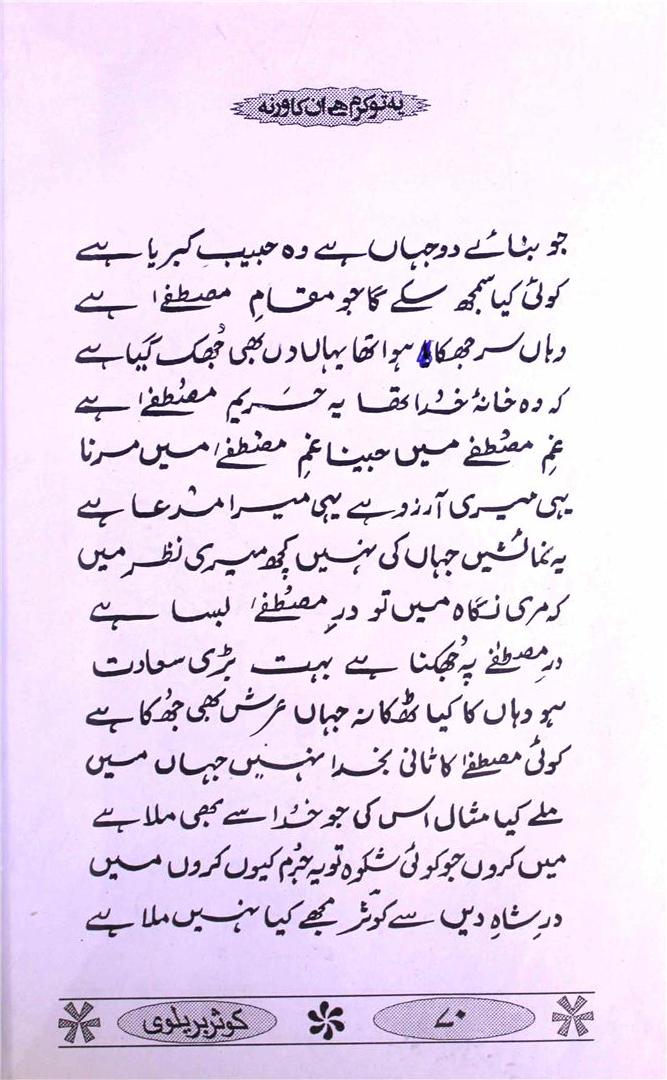 یہ تو کرم ہے ان کا ورنہ
جو بنائے دو جہاں ہے وہ حبیبِ کبریا ہے
کوئی کیا سمجھ سکے گا جو مقامِ مصطفےٰ ہے
وہاں سر جھکا ہوا تھا یہاں دل بھی جُھک گیا ہے
کہ وہ خانۂ خُدا تھا یہ حریمِ مصُطفےٰ ہے
غمِ مصُطفےٰ میں جینا غمِ مصُطفےٰ میں مرنا
یہی میری آرزو ہے یہی میرا مُدعا ہے
یہ نمائشیں جہاں کی نہیں کچھ میری نظر میں
کہ مری نگاہ میں تو درِ مصُطفےٰ بسا ہے
درِ مصطفےٰ پہ جُھکنا ہے بہت بڑی سعادت
ہو وہاں کا کیا ٹھکانہ جہاں عرش بھی جُھکا ہے
کوئی مصطفےٰ کا ثانی بخدا نہیں جہاں میں
ملے کیا مثال اس کی جو خُدا سے بھی ملا ہے
میں کروں جو کوئی شکوہ تو یہ جُرم کیوں کروں میں
درِ شاہِ دیں سے کوثرؔ مجھے کیا نہیں ملا ہے
۷۰
کوثر بریلوی